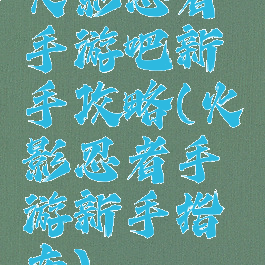 火影忍者
手游吧新
手攻略(火
影忍者手
游新手指
南)